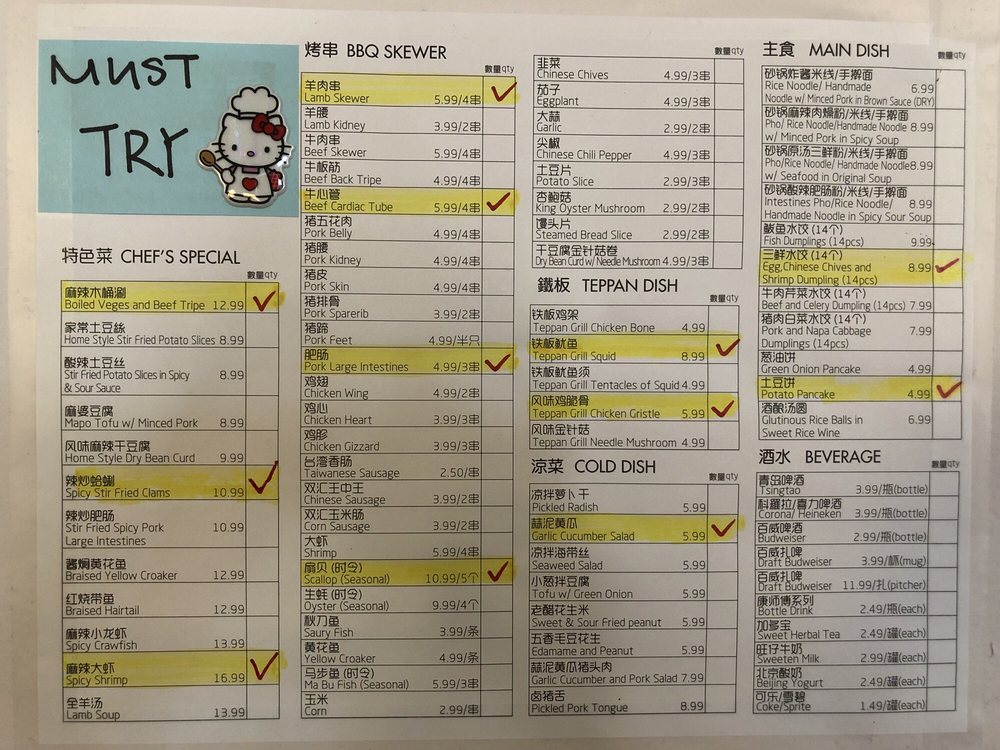 MUST
TRY
特色菜 CHEF'S SPECIAL
數量qty
麻辣木桶涮
Boiled Veges and Beef Tripe 12.99
家常土豆絲
Home Style Stir Fried Potato Slices 8.99
酸辣土豆丝
Stir Fried Potato Slices in Spicy
& Sour Sauce 8.99
麻婆豆腐
Mapo Tofu w/ Minced Pork 8.99
风味麻辣干豆腐
Home Style Dry Bean Curd 9.99
辣炒蛤蜊
Spicy Stir Fried Clams 10.99
辣炒肥肠
Stir Fried Spicy Pork 10.99
Large Intestines
酱焖黄花鱼
Braised Yellow Croaker 12.99
红烧带鱼
Braised Hairtail 12.99
麻辣小龙虾
Spicy Crawfish 13.99
麻辣大虾
Spicy Shrimp 16.99
全羊汤
Lamb Soup 13.99
烤串 BBQ SKEWER
數量qty
羊肉串
Lamb Skewer 5.99/4串
羊腰
Lamb Kidney 3.99/2串
牛肉串
Beef Skewer 5.99/4串
牛板筋
Beef Back Tripe 4.99/4串
牛心管
Beef Cardiac Tube 5.99/4串
猪五花肉
Pork Belly 4.99/4串
猪腰
Pork Kidney 4.99/4串
猪皮
Pork Skin 4.99/4串
猪排骨
Pork Sparerib 3.99/2串
猪蹄
Pork Feet 4.99/半只
肥肠
Pork Large Intestines 4.99/3串
鸡翅
Chicken Wing 4.99/2串
鸡心
Chicken Heart 3.99/3串
鸡胗
Chicken Gizzard 3.99/3串
台湾香肠
Taiwanese Sausage 2.50/串
双汇王中王
Chinese Sausage 3.99/2串
双汇玉米肠
Corn Sausage 3.99/2串
大虾
Shrimp 5.99/4串
扇贝 (时令)
Scallop (Seasonal) 10.99/5个
生蚝 (时令)
Oyster (Seasonal) 9.99/4个
秋刀鱼
Saury Fish 3.99/条
黄花鱼
Yellow Croaker 4.99/条
马步鱼 (时令)
Ma Bu Fish (Seasonal) 5.99/3串
玉米
Corn 2.99/串
數量qty
韭菜
Chinese Chives 4.99/3串
茄子
Eggplant 4.99/3串
大蒜
Garlic 2.99/2串
尖椒
Chinese Chili Pepper 4.99/3串
土豆片
Potato Slice 2.99/3串
杏鲍菇
King Oyster Mushroom 2.99/2串
馒头片
Steamed Bread Slice 2.99/2串
干豆腐金针菇卷
Dry Bean Curd w/ Needle Mushroom 4.99/3串
鐵板 TEPPAN DISH
數量qty
铁板鸡架
Teppan Grill Chicken Bone 4.99
铁板鱿鱼
Teppan Grill Squid 8.99
铁板鱿鱼须
Teppan Grill Tentacles of Squid 4.99
风味鸡脆骨
Teppan Grill Chicken Gristle 5.99
风味金针菇
Teppan Grill Needle Mushroom 4.99
涼菜 COLD DISH
數量qty
凉拌萝卜干
Pickled Radish 5.99
蒜泥黄瓜
Garlic Cucumber Salad 5.99
凉拌海带丝
Seaweed Salad 5.99
小葱拌豆腐
Tofu w/ Green Onion 5.99
老醋花生米
Sweet & Sour Fried peanut 5.99
五香毛豆花生
Edamame and Peanut 5.99
蒜泥黄瓜猪头肉
Garlic Cucumber and Pork Salad 7.99
卤猪舌
Pickled Pork Tongue 8.99
主食 MAIN DISH
數量qty
砂锅炸酱米线/手擀面
Rice Noodle/ Handmade 6.99
Noodle w/ Minced Pork in Brown Sauce (DRY)
砂锅麻辣肉燥粉/米线/手擀面
Pho/ Rice Noodle/Handmade Noodle 8.99
w/ Minced Pork in Spicy Soup
砂锅原汤三鲜粉/米线/手擀面
Pho/Rice Noodle/ Handmade Noodle8.99
w/ Seafood in Original Soup
砂锅酸辣肥肠粉/米线/手擀面
Intestines Pho/Rice Noodle/ 8.99
Handmade Noodle in Spicy Sour Soup
鲅鱼水饺 (14个)
Fish Dumplings (14pcs) 9.99
三鲜水饺 (14个)
Egg,Chinese Chives and 8.99
Shrimp Dumpling (14pcs)
牛肉芹菜水饺 (14个)
Beef and Celery Dumpling (14pcs) 7.99
猪肉白菜水饺 (14个)
Pork and Napa Cabbage 7.99
Dumplings (14pcs)
葱油饼
Green Onion Pancake 4.99
土豆饼
Potato Pancake 4.99
酒酿汤圆
Glutinous Rice Balls in 6.99
Sweet Rice Wine
酒水 BEVERAGE
數量qty
青岛啤酒
Tsingtao 3.99/瓶(bottle)
科羅拉/喜力啤酒
Corona/ Heineken 3.99/瓶(bottle)
百威啤酒
Budweiser 2.99/瓶(bottle)
百威扎啤
Draft Budweiser 3.99/杯(mug)
百威扎啤
Draft Budweiser 11.99/扎(pitcher)
康师傅系列
Bottle Drink 2.49/瓶(each)
加多宝
Sweet Herbal Tea 2.49/罐(each)
旺仔牛奶
Sweeten Milk 2.99/罐(each)
北京酸奶
Beijing Yogurt 2.49/罐(each)
可乐/雪碧
Coke/Sprite 1.49/罐(each)